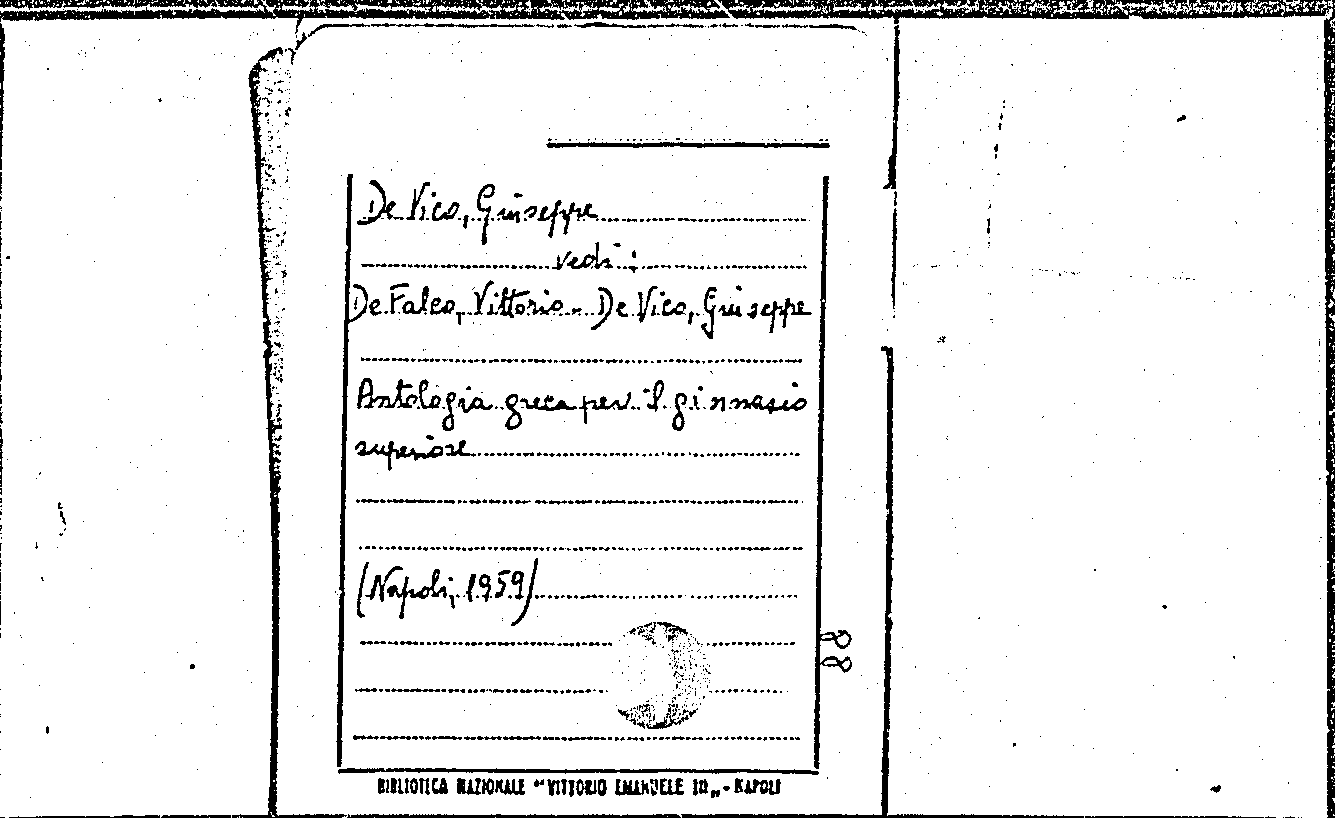 De Vico, Giuseppe
vedi:
De Falco, Vittorio - De Vico, Giuseppe
Antologia greca per il ginnasio
superiore
(Napoli, 1959)
88
BIBLIOTECA NAZIONALE "VITTORIO EMANUELE III„ - NAPOLI